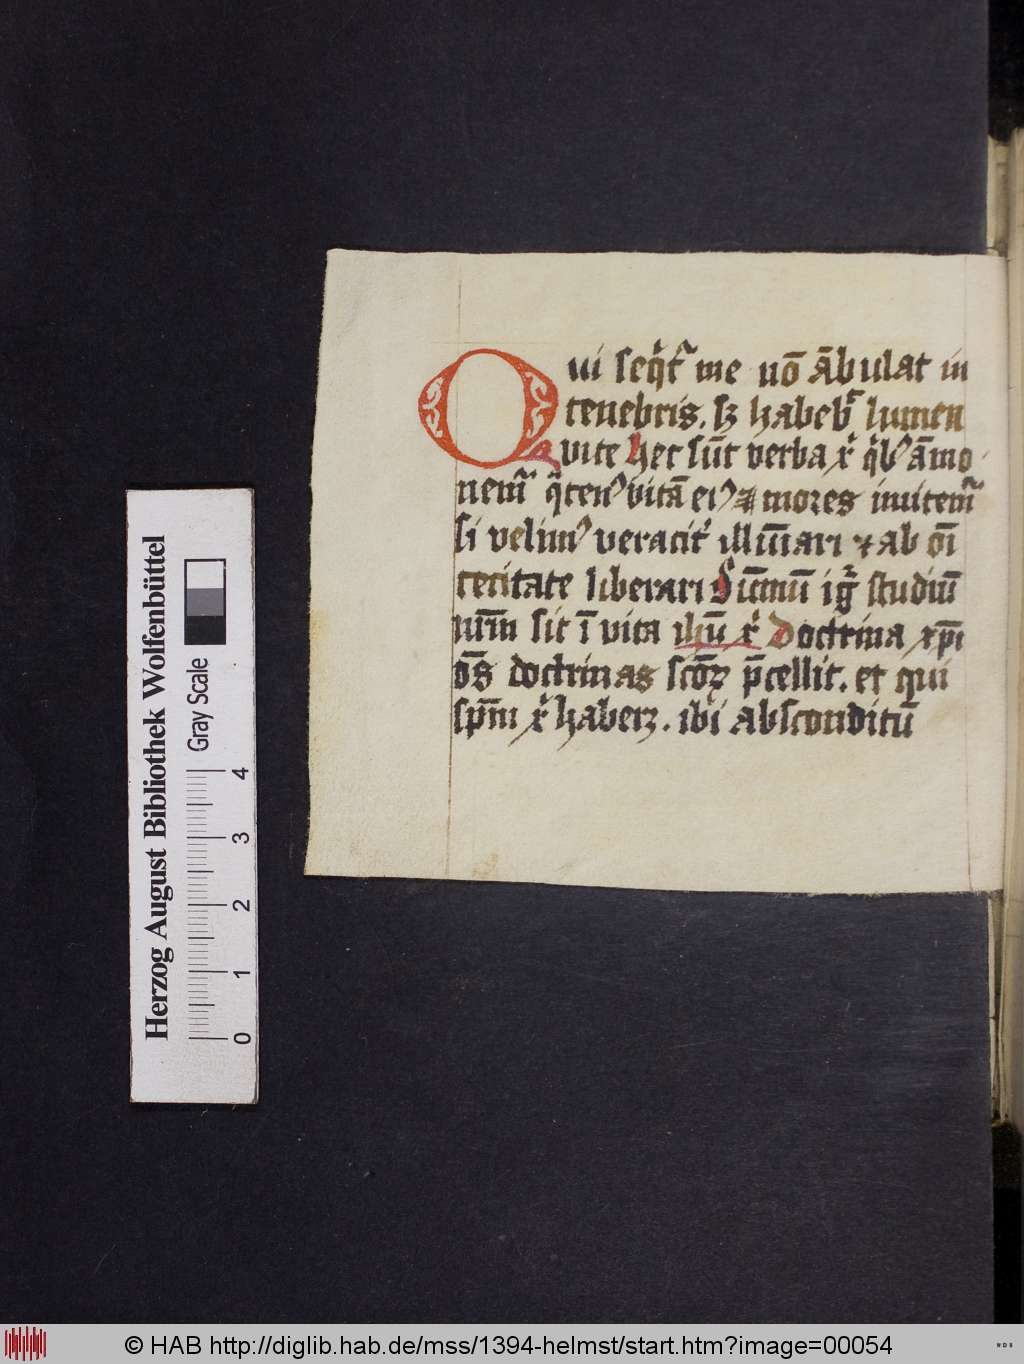 Qui seqͥtᷣ me nō ābulat in
tenebris. sꝫ habebᷣ lumen
vite Hec sūt verba xͥ qͥbꝰ āmo
nemᷣ qͣtenꝰ vitā eiꝰ ⁊ mores imitemᷣ
si velimꝰ veracitᷣ illūīari ⁊ ab oī
cecitate liberari Sūmū igͬ studiū
nr̄m sit ī vita ihū xͥ Doctrina xp̄i
oēs doctrinas scōꝝ p̄cellit. et qui
sp̄m xͥ haberꝫ. ibi absconditū
Herzog August Bibliothek Wolfenbüttel
Gray Scale
0 1 2 3 4
© HAB http://diglib.hab.de/mss/1394-helmst/start.htm?image=00054